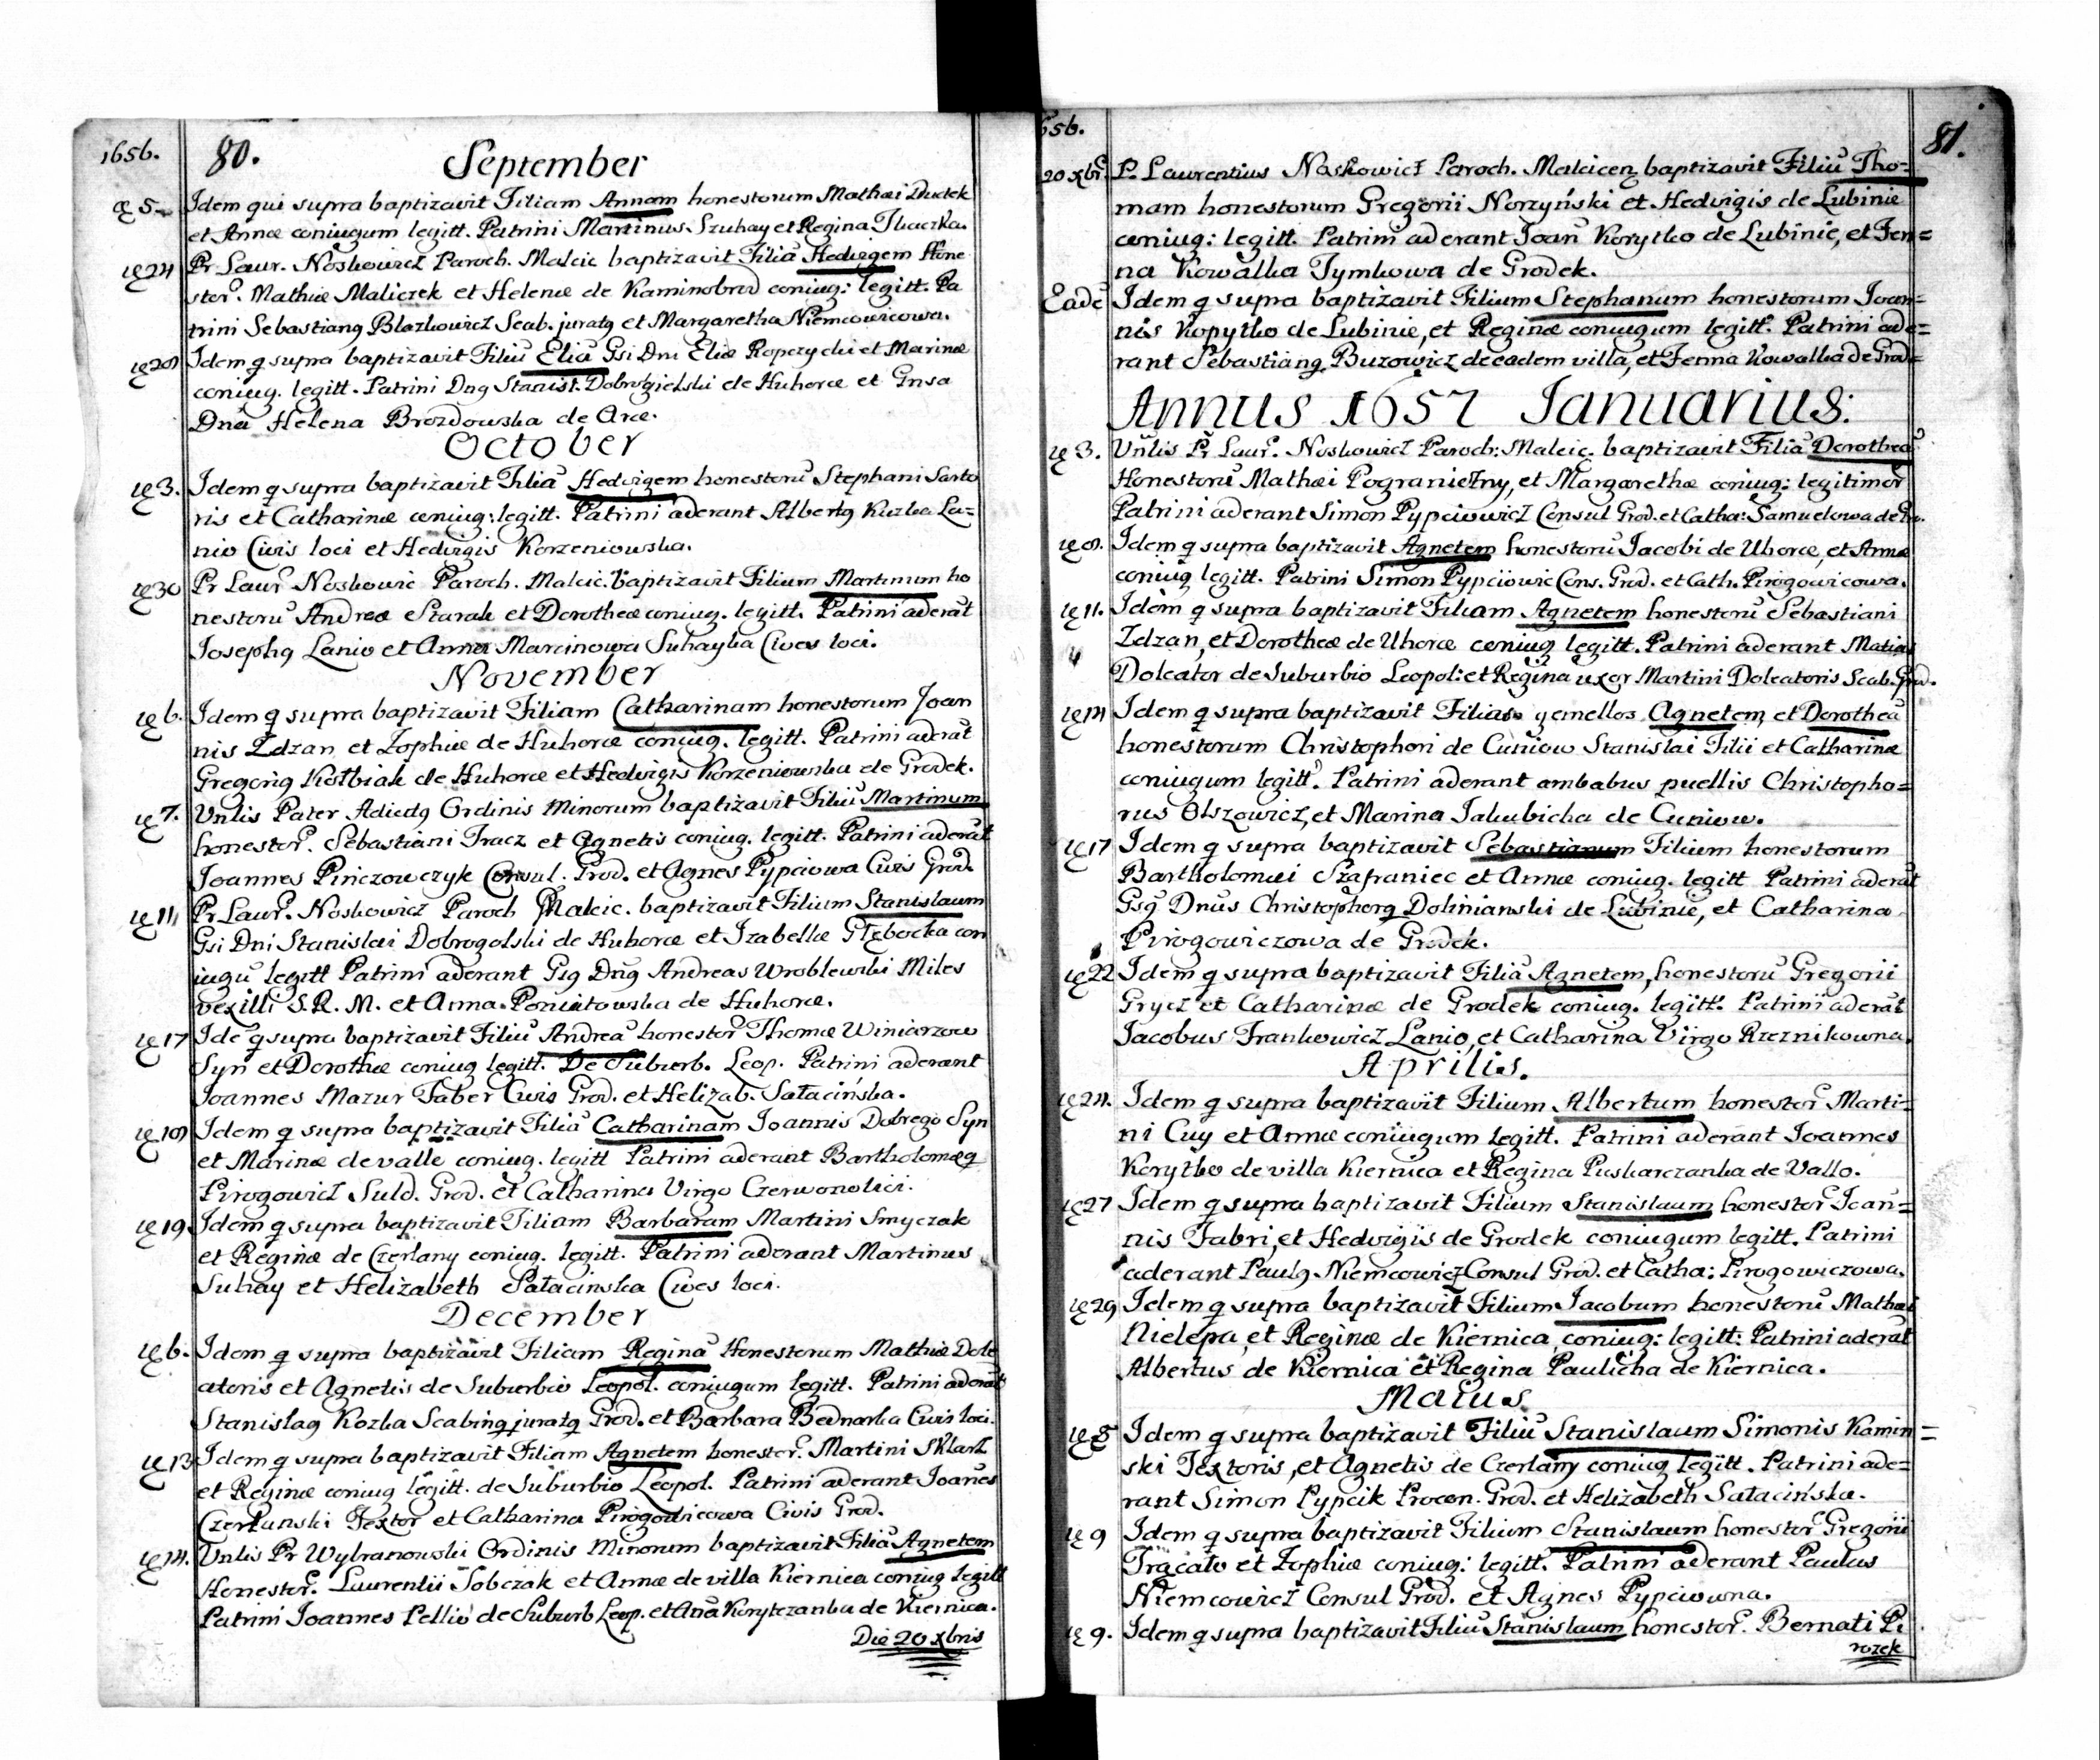 1656. 80.
September
æ 5. Idem qui supra baptizavit Filiam Annam honestorum Mathæi Dudek
et Annæ coniugum legitt. Patrini Martinus Szuhay et Regina Tkaczka.
æ 24 Pr Laur. Noskowicz Paroch. Malcic baptizavit Filiā Hedvigem Hone
stor. Mathiæ Maliczek et Helenæ de Kaminobrod coniug: legitt. Pa
trini Sebastianq Blazkowicz Scab. juratq et Margaretha Niemcowicowa.
Idem q supra baptizavit Filiū Eliā Gsi Dni Eliæ Ropczycki et Marinæ
coniug. legitt. Patrini Dnq Stanisl. de Huhorce et Gnsa
Dnā Helena Brozdowska de Arce.
October
æ 3. Idem q supra baptizavit Filiā Hedvigem honestorū Stephani Sarto
ris et Catharinæ coniug: legitt. Patrini aderant Albertq Kuzba La=
nio Civis loci et Hedvigis Korzeniowska.
æ 30 Pr Laur Noskowic Paroch. Malcic. baptizavit Filium Martinum ho
nestorū Andreæ Sturak et Dorotheæ coniug. legitt. Patrini aderāt
Josephq Lanio et Anna Marcinowa Suhayka Cives loci.
November
æ 6. Idem q supra baptizavit Filiam Catharinam honestorum Joan
nis Zdzan et Zophiæ de Huhorce coniug. legitt. Patrini aderāt
Gregoriq Kołbiak de Huhorce et Hedvigis Korzeniowska de Grodek.
æ 7. Vnlis Pater Ordinis Minorum baptizavit Filiū Martinum
honestor. Sebastiani Tracz et Agnetis coniug. legitt. Patrini aderāt
Joannes Pinczowczyk Consul. Grod. et Agnes Pypciowa Civis Grod.
æ 11 Pr Laur. Noskowicz Paroch Malcic. baptizavit Filium Stanislaum
Gsi Dni Stanislai Dobrogolski de Huhorce et Izabellæ Głębocka con
iugū legitt Patrini aderant Gsq Dnq Andreas Wroblewski Miles
vexilli S. R. M. et Anna Poniatowska de Huhorce.
æ 17 Idē q supra baptizavit Filiū Andreā honestor Thomæ Winiarzow
Syn et Dorotheæ coniug legitt. De Suburb. Leop. Patrini aderant
Joannes Mazur Faber Civis Grod. et Helizab. Sałacińska.
Idem q supra baptizavit Filiā Catharinam Joannis Dobrego Syn
et Marinæ de valle coniug. legitt Patrini aderant Bartholomæq
Pirogowicz Suld. Grod. et Catharina Virgo Czerwonolici.
æ 19 Idem q supra baptizavit Filiam Barbaram Martini Smyczak
et Reginæ de Czerlany coniug. legitt. Patrini aderant Martinus
Suhay et Helizabeth Sałacinska Cives loci.
December
æ 6. Idem q supra baptizavit Filiam Reginā Honestorum Mathiæ Dole
atoris et Agnetis de Suburbio Leopol. coniugum legitt. Patrini aderāt
Stanislaq Kozba Scabinq juratq Grod. et Barbara Bednarka Civis loci.
æ 13 Idem q supra baptizavit Filiam Agnetem honestor. Martini Sklarz
et Reginæ coniug legitt. de Suburbio Leopol. Patrini aderant Joañes
Czerlunski Textor et Catharina Pirogowicowa Civis Grod.
æ 14. Vnlis Pr Wybranowski Ordinis Minorum baptizavit Filiā Agnetem
Honestor. Laurentii Sobczak et Annæ de villa Kiernica coniug legitt
Patrini Joannes Pellio de Suburb Leop. et Anā Korytczanka de Kiernica.
Die 20 xbris
656. 81.
20 xbr. P. Laurentius Noskowicz Paroch. Malcicen baptizavit Filiū Tho=
mam honestorum Gregorii Norzyński et Hedvigis de Lubinie
coniug: legitt. Patrini aderant Joañ Korytko de Lubinie, et Fen=
na Kowalka Tymkowa de Grodek.
Eadē Idem q supra baptizavit Filium Stephanum honestorum Joan=
nis Kopytko de Lubinie, et Reginæ coniugum legitt. Patrini ade=
rant Sebastianq Buzowicz de eadem villa, et Fenna Kowalka de Grod=
Annus 1657 Ianuarius:
æ 3. Vnlis Pr Laur. Noskowicz Paroch: Malcic. baptizavit Filiā Dorotheā
Honestorū Mathæi Pograniczny, et Margarethæ coniug: legitimor
Patrini aderant Simon Pypciowicz Consul Grod. et Catha: Samuelowa de Gr.
Idem q supra baptizavit Agnetem honestorū Jacobi de Uhorce, et Annæ
coniug legitt. Patrini Simon Pypciowic Cons. Grod. et Cath. Pirogowicowa.
æ 11. Idem q supra baptizavit Filiam Agnetem honestorū Sebastiani
Zdzan, et Dorotheæ de Uhorce coniug legitt. Patrini aderant Matias
Doleator de Suburbio Leopol: et Regina uxor Martini Doleatoris Scab. Grod.
æ 14 Idem q supra baptizavit Filias gemellos Agnetem et Dorotheā
honestorum Christophori de Cuniow Stanislai Filii et Catharinæ
coniugum legitt. Patrini aderant ambabus puellis Christopho=
rus Olszowicz, et Marina Jakubicha de Cuniow.
æ 17 Idem q supra baptizavit Sebastianum Filium honestorum
Bartholomæi Szafraniec et Annæ coniug. legitt Patrini aderāt
Gsq Dnus Christophorq Dolinianski de Lubinie, et Catharina
Pirogowiczowa de Grodek.
æ 22 Idem q supra baptizavit Filiā Agnetem, honestorū Gregorii
Grycz et Catharinæ de Grodek coniug. legitt. Patrini aderāt
Jacobus Frankowicz Lanio, et Catharina Virgo Rzeznikowna.
Aprilis.
æ 24. Idem q supra baptizavit Filium Albertum honestor Marti=
ni Cuy et Annæ coniugum legitt. Patrini aderant Joannes
Korytko de villa Kiernica et Regina Puskarczanka de Vallo.
æ 27 Idem q supra baptizavit Filium Stanislaum honestor Joan=
nis Fabri, et Hedvigis de Grodek coniugum legitt. Patrini
aderant Paulq Niemcowicz Consul Grod. et Catha: Pirogowiczowa.
æ 29 Idem q supra baptizavit Filium Jacobum honestorū Mathæi
Nielepa, et Reginæ de Kiernica, coniug: legitt: Patrini aderāt
Albertus de Kiernica et Regina Paulicha de Kiernica.
Maius
æ 8 Idem q supra baptizavit Filiū Stanislaum Simonis Kamin=
ski Textoris, et Agnetis de Czerlany coniug legitt. Patrini ade=
rant Simon Pypcik Procon. Grod. et Helizabeth Sałacińska.
æ 9 Idem q supra baptizavit Filium Stanislaum honestor Gregorii
Tracało et Zophiæ coniug: legitt. Patrini aderant Paulus
Niemcowicz Consul Grod. et Agnes Pypciowna.
æ 9. Idem q supra baptizavit Filiū Stanislaum honestor. Bernati Pi
rozek